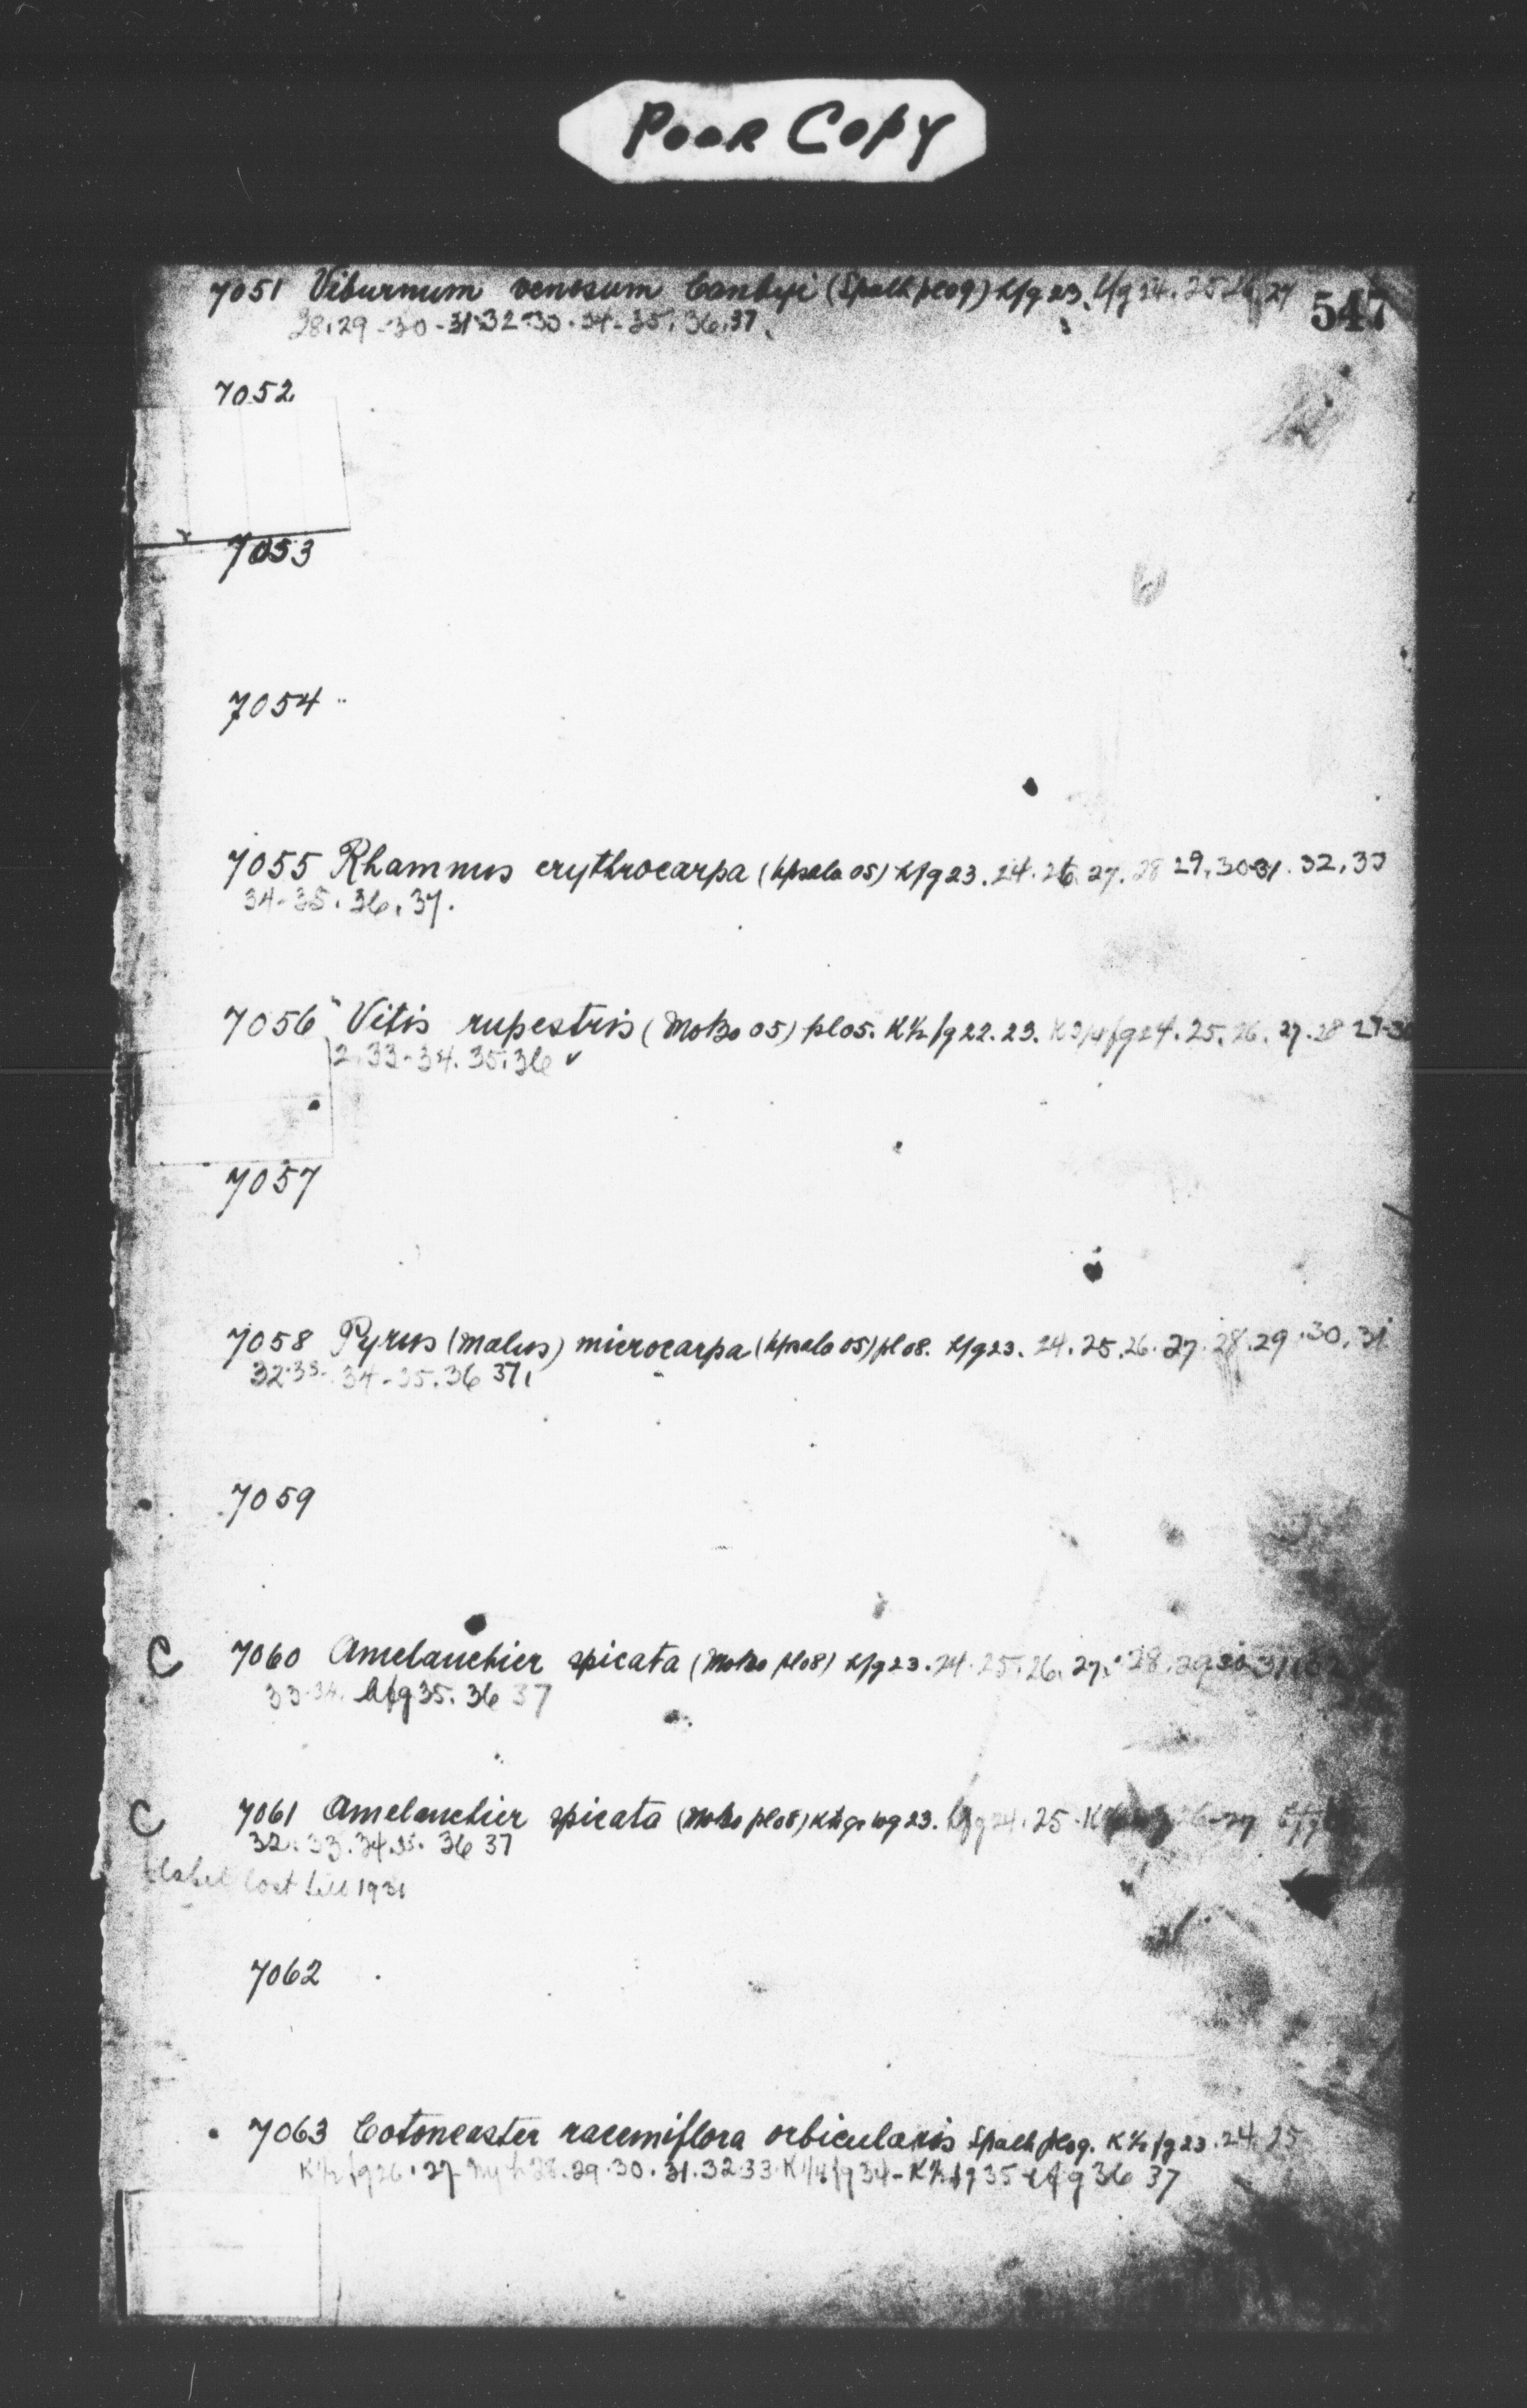 Poor Copy
547
7051 Viburnum venosum Canbyi (Spath pl09) l/g 23. l/g 24. 25 26 27
28. 29 - 30 - 31. 32 - 33. 34 - 35. 36. 37
7052
7053
7054
7055 Rhamnus erythrocarpa (Upsala 05) l/g 23. 24. 26. 27. 28 29. 30-31. 32. 33
34-35. 36. 37.
7056 Vitis rupestris (MoBo 05) pl05. K½ fg 22. 23. K3/4 fg 24. 25. 26. 27. 28 29-30
2. 33-34. 35. 36 ✓
7057
7058 Pyrus (Malus) microcarpa (Upsala 05) pl 08. l/g 23. 24. 25. 26. 27. 28. 29. 30. 31
32. 33. 34-35. 36 37.
7059
C 7060 Amelanchier spicata (MoBo pl08) l/g 23. 24. 25. 26. 27. 28. 29 30 31. 32
33-34. l/g 35. 36 37
C 7061 Amelanchier spicata (MoBo pl08) 23. 24. 25. 26-27
32. 33. 34. 35. 36 37
label lost till 1931
7062
7063 Cotoneaster racemiflora orbicularis Spath pl09. K½ fg 23. 24. 25
K½ fg 26. 27 28. 29. 30. 31. 32 33. K1/4 fg 34 - K½ fg 35 l/g 36 37